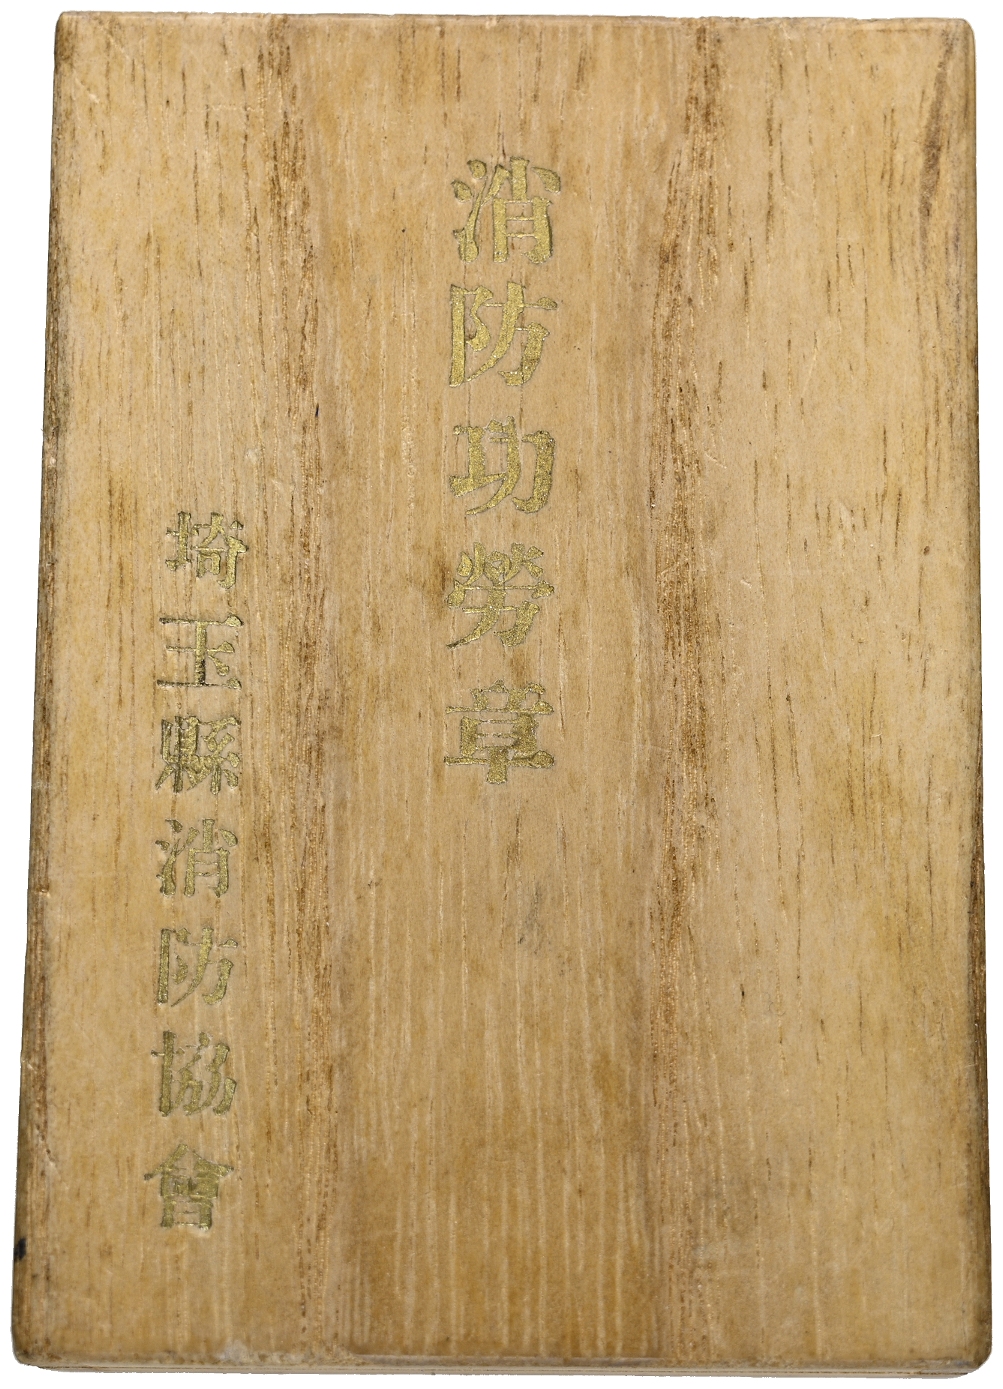 消防功勞章
埼玉縣消防協會